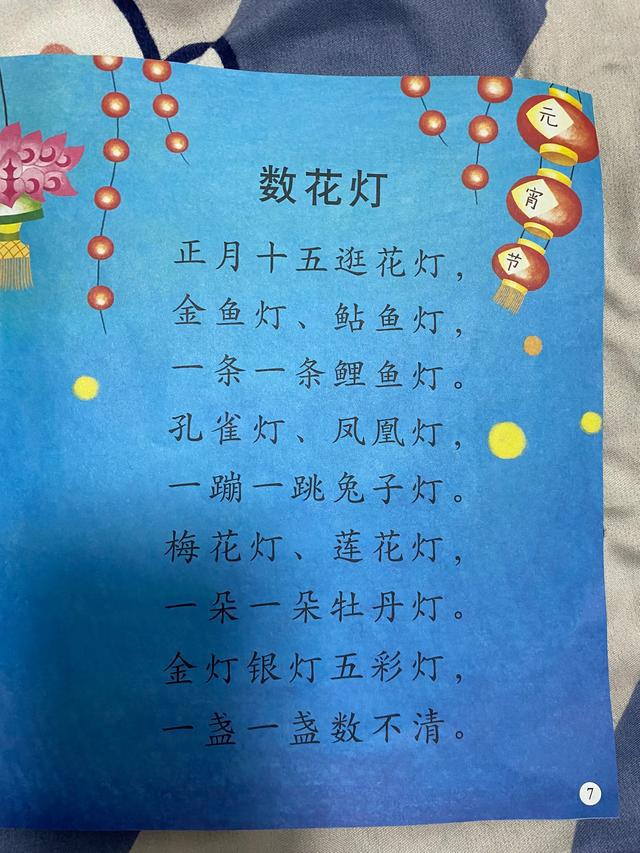 元
宵
节
数花灯
正月十五逛花灯，
金鱼灯、鲇鱼灯，
一条一条鲤鱼灯。
孔雀灯、凤凰灯，
一蹦一跳兔子灯。
梅花灯、莲花灯，
一朵一朵牡丹灯。
金灯银灯五彩灯，
一盏一盏数不清。
7